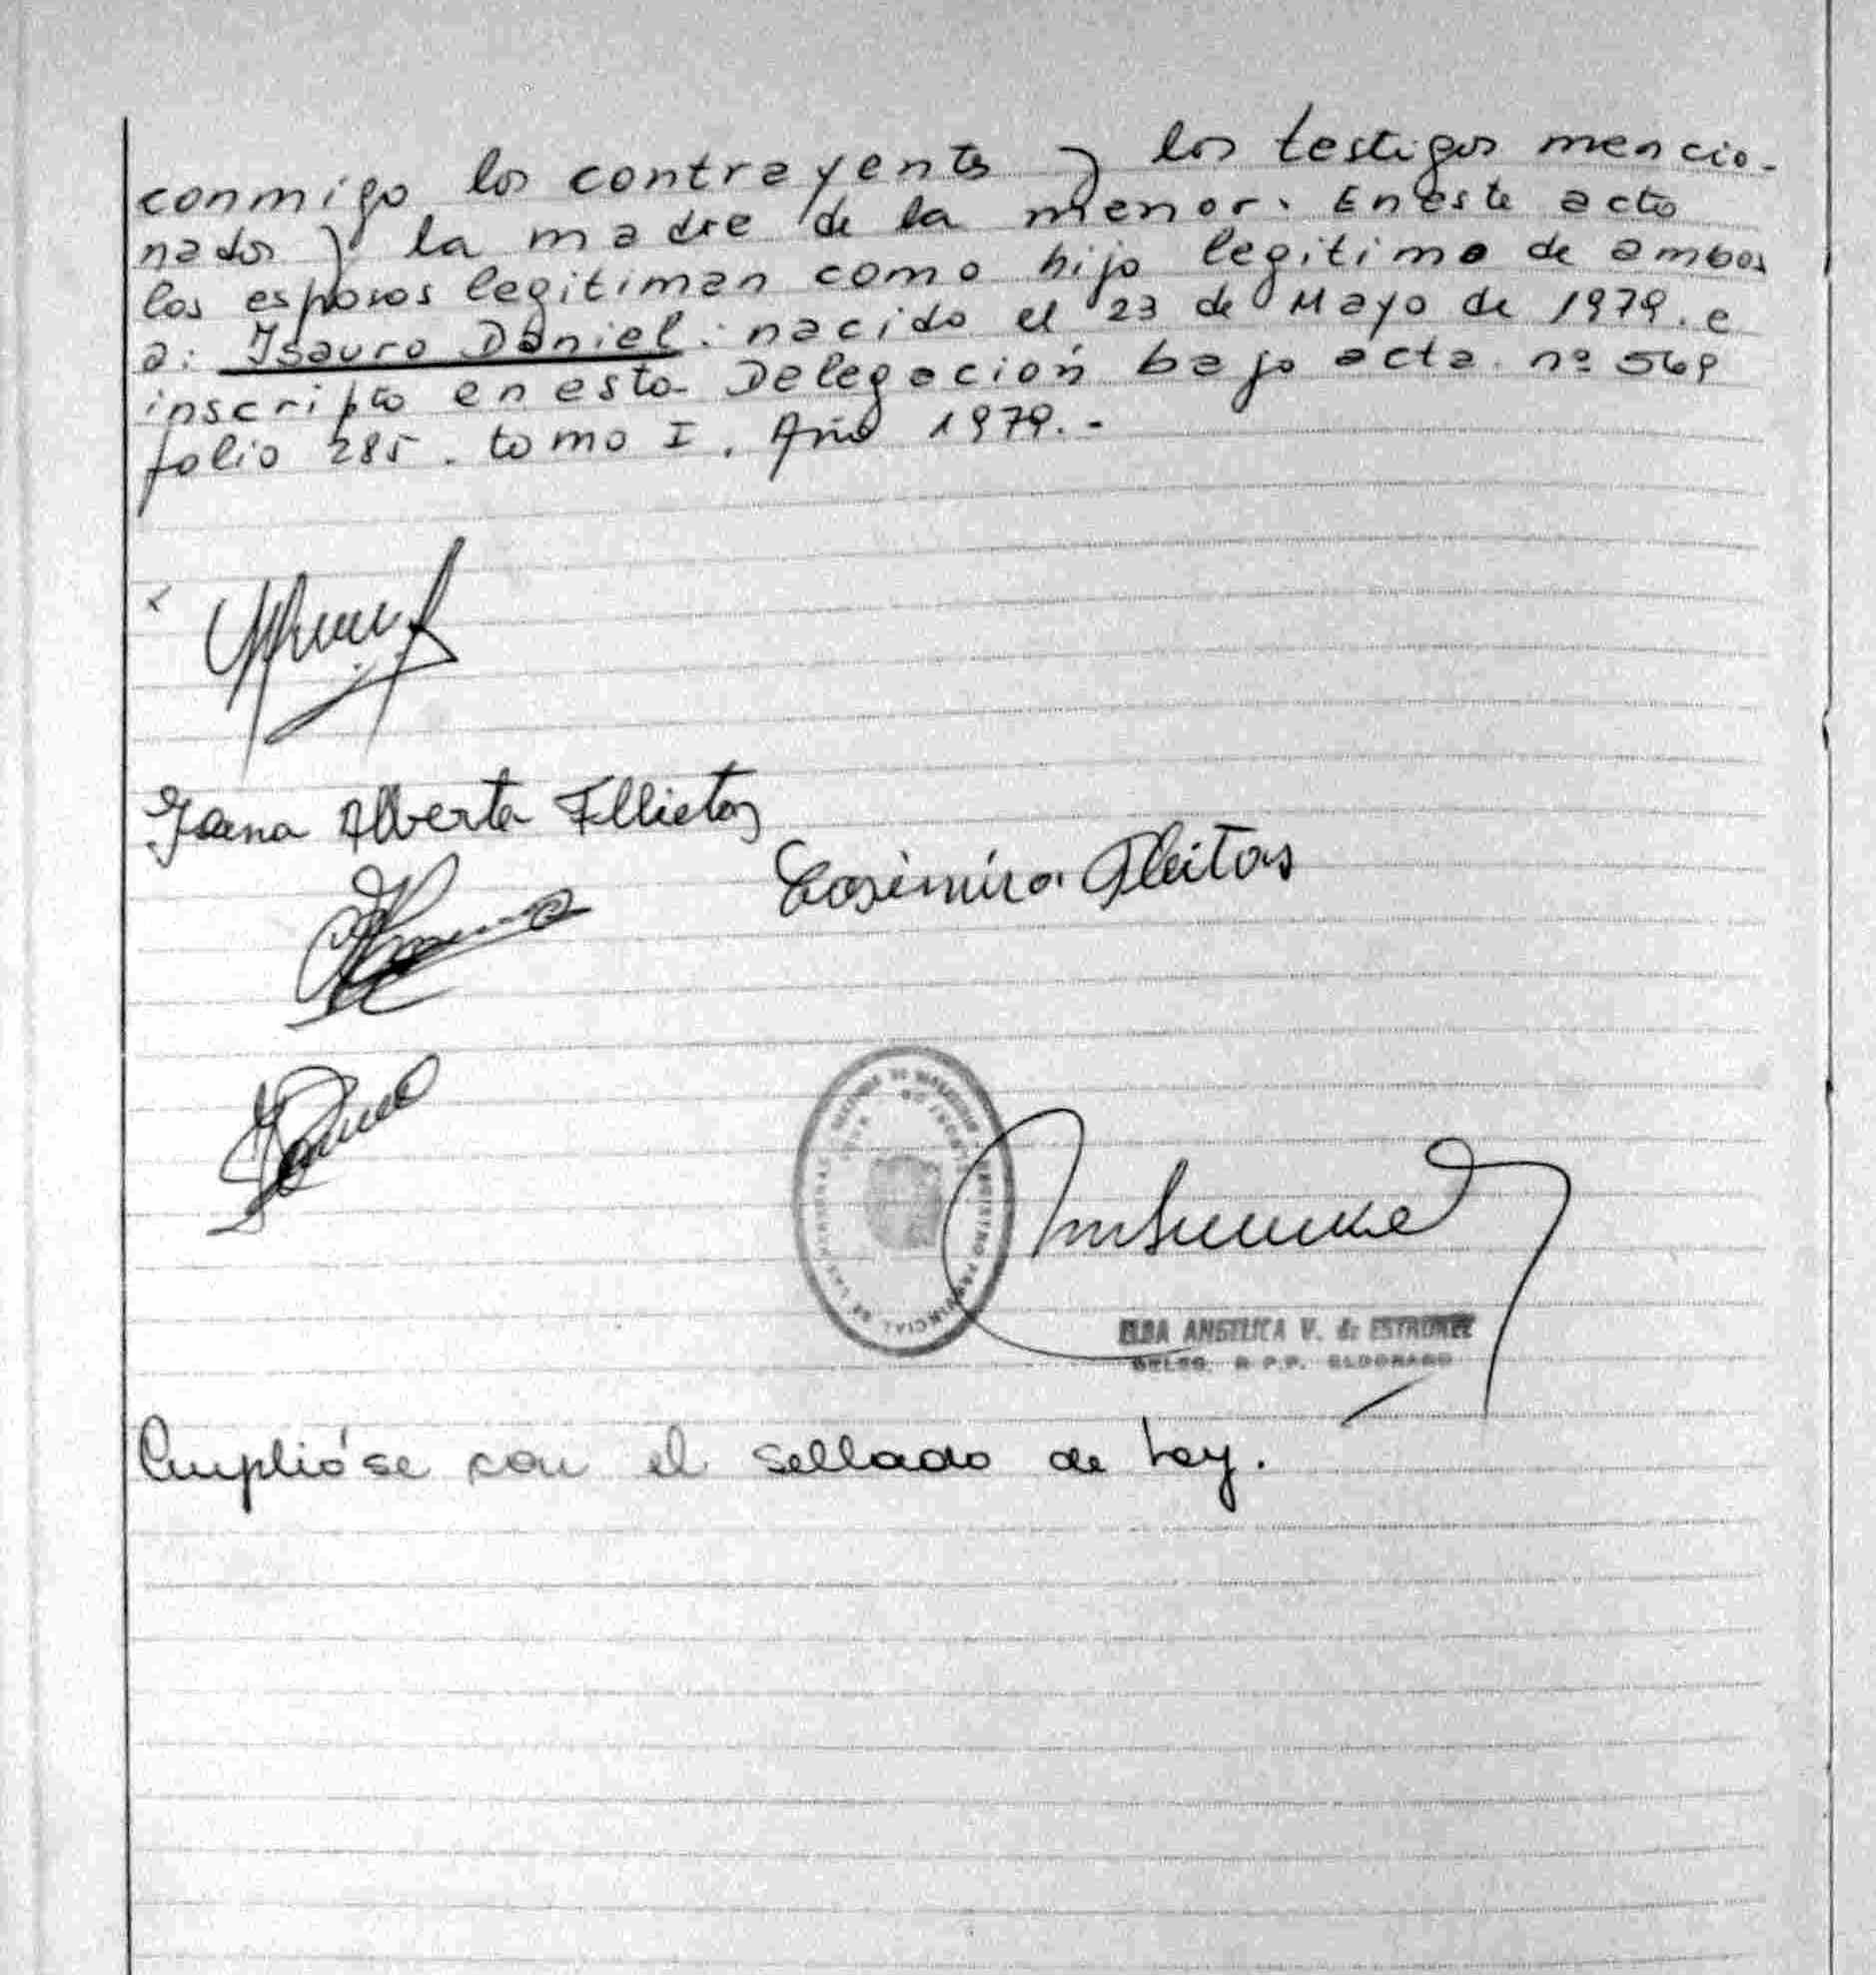 conmigo los contrayentes y los testigos mencio-
nados y la madre de la menor. En este acto
los esposos legitiman como hijo legitimo de ambos
a: Isauro Daniel. nacido el 23 de Mayo de 1979. e
inscripto en esta Delegación bajo acta nº 569
folio 285. tomo I. Año 1979.-
Juana Alberta
Casimira Fleitas
ELBA ANGELICA V. de
DELEG. R.P.P. ELDORADO
Cumplióse con el sellado de Ley.